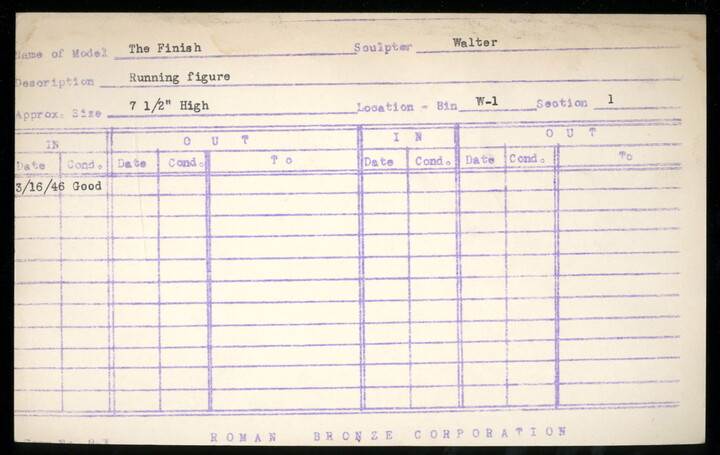 Name of Model The Finish Sculptor Walter
Description Running figure
Approx. Size 7 1/2" High Location - Bin W-1 Section 1
IN OUT IN OUT
Date Cond. Date Cond. To Date Cond. Date Cond. To
3/16/46 Good
ROMAN BRONZE CORPORATION